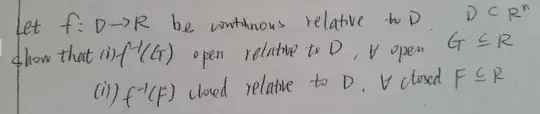 Let f: D→R be continuous relative to D. D ⊂ Rⁿ
show that (i) f⁻¹(G) open relative to D, ∀ open G ⊆ R
(ii) f⁻¹(F) closed relative to D, ∀ closed F ⊆ R.